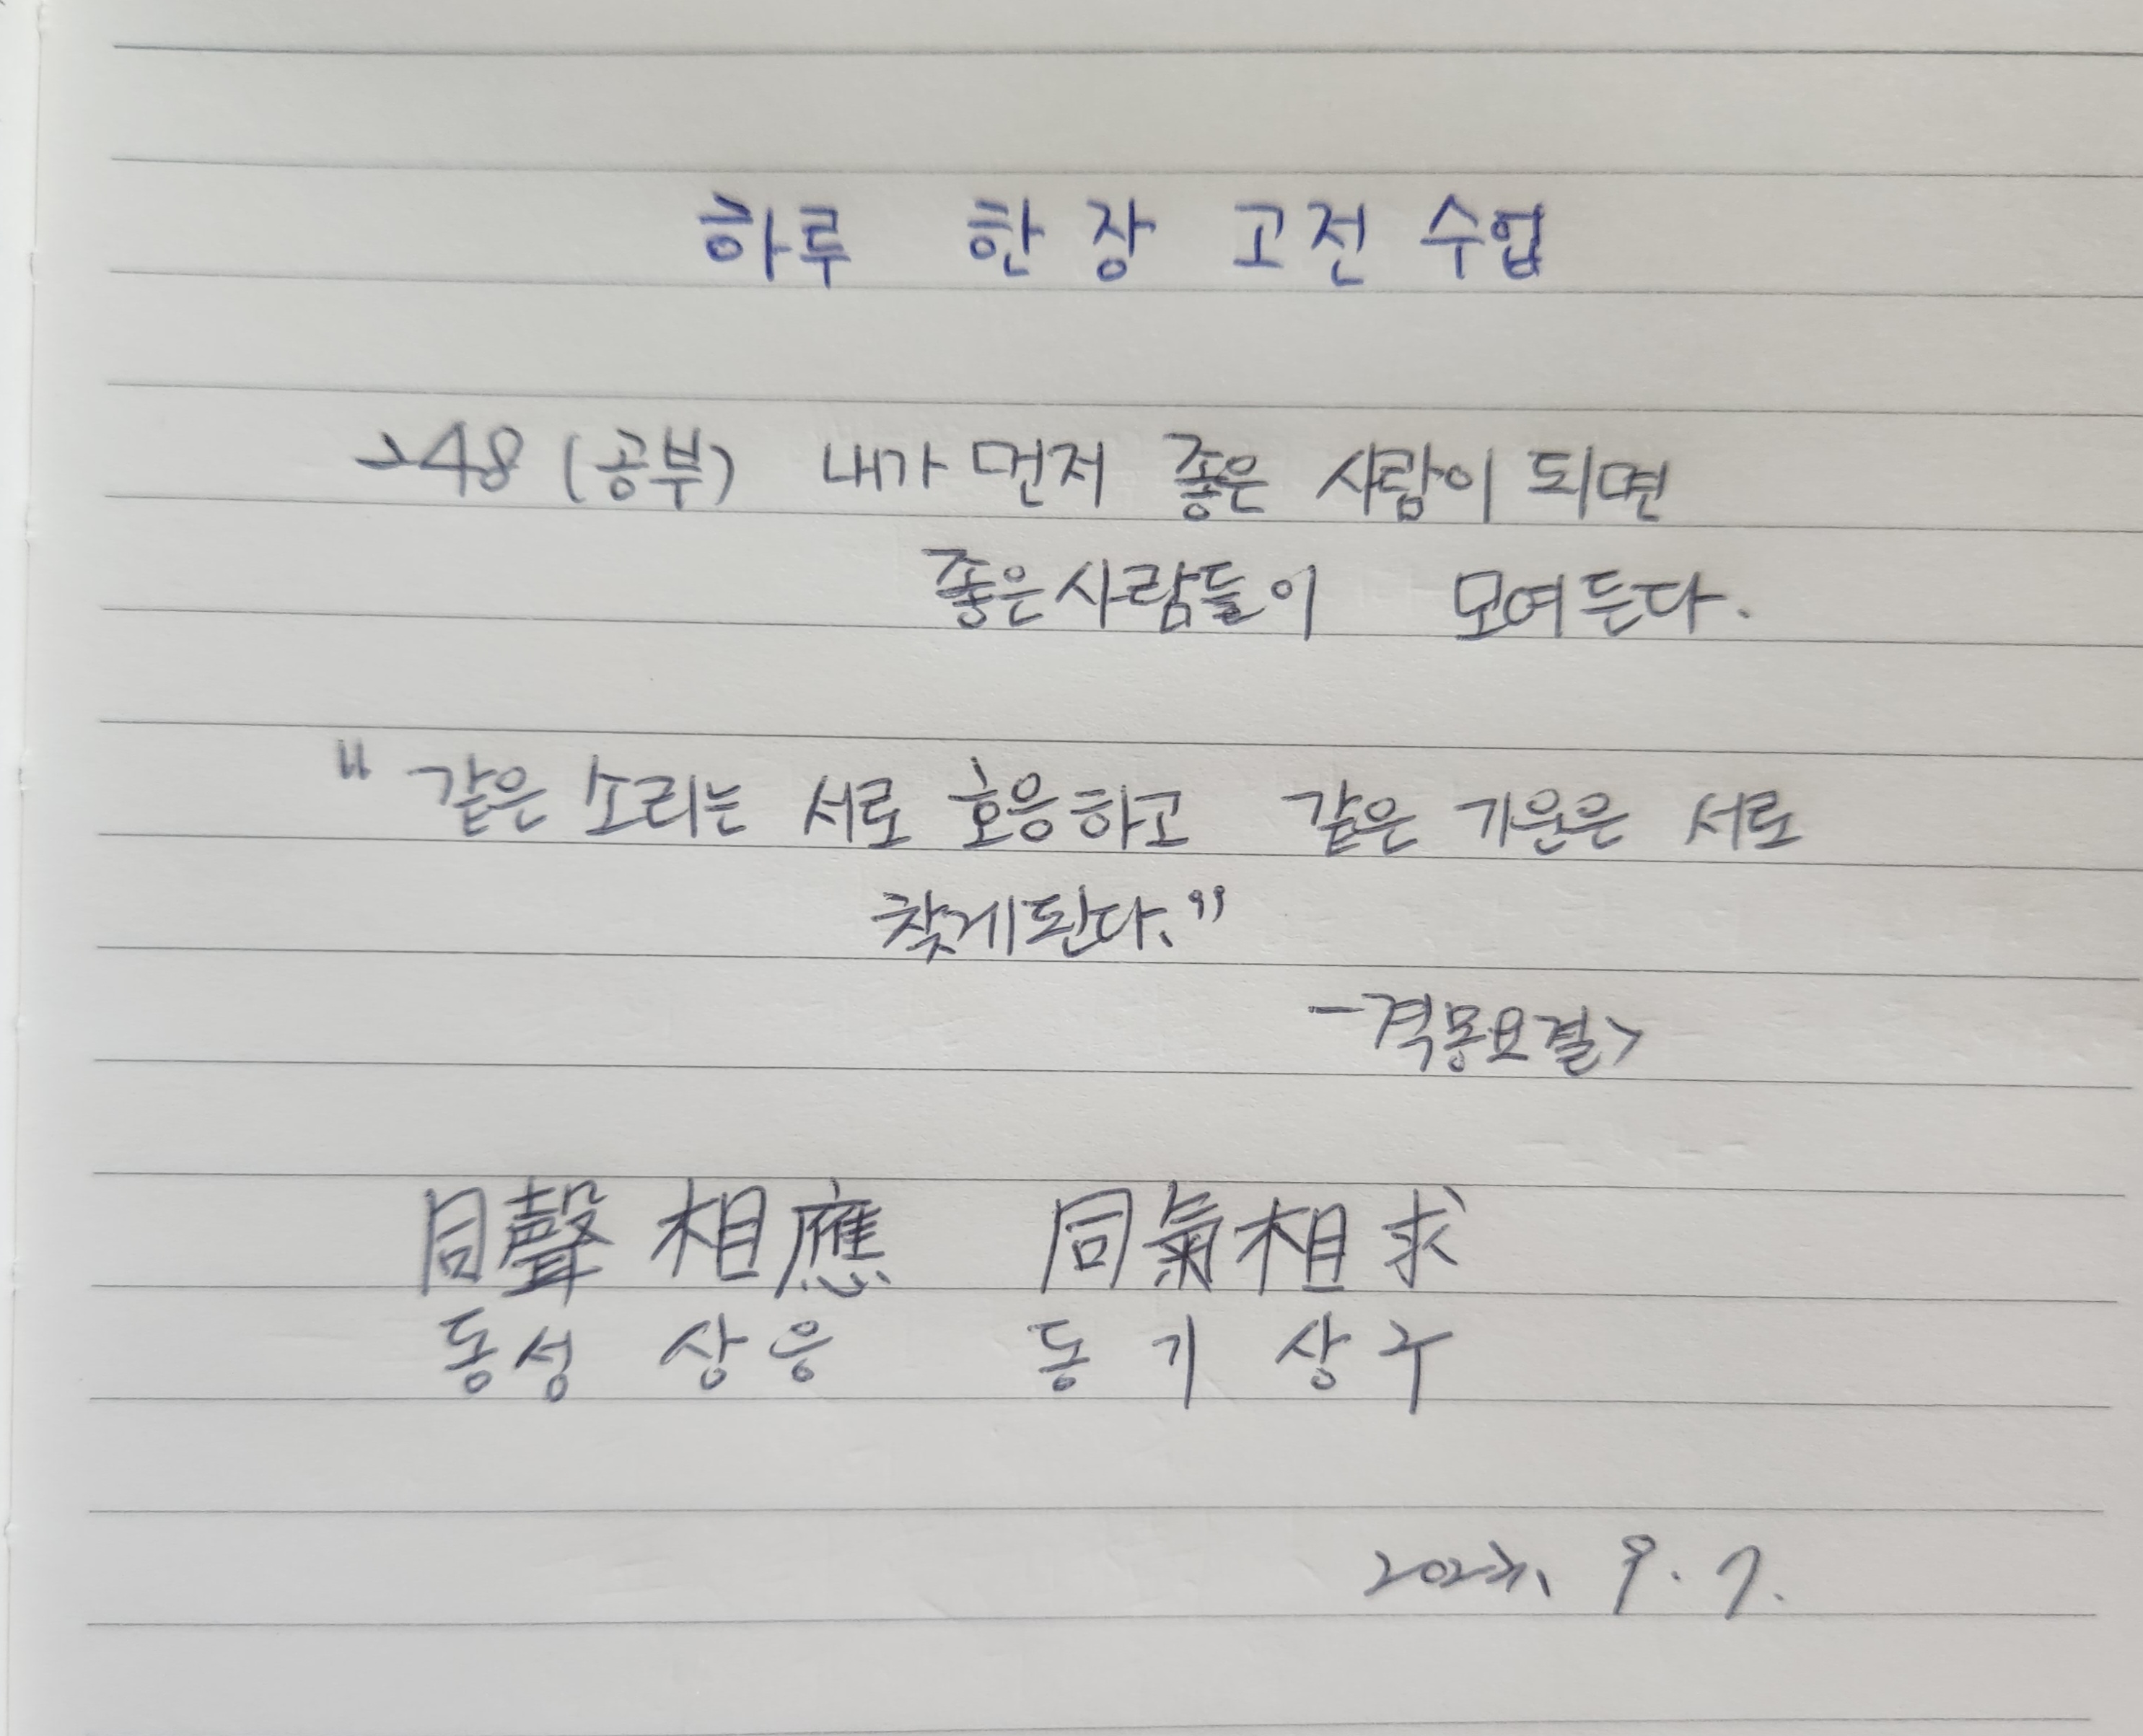 하루 한 장 고전 수업
→48 (공부) 내가 먼저 좋은 사람이 되면
좋은사람들이 모여든다.
"같은 소리는 서로 호응하고 같은 기운은 서로
찾게된다."
-격몽요결>
同聲 相應 同氣相求
동성 상응 동기상구
9. 7.